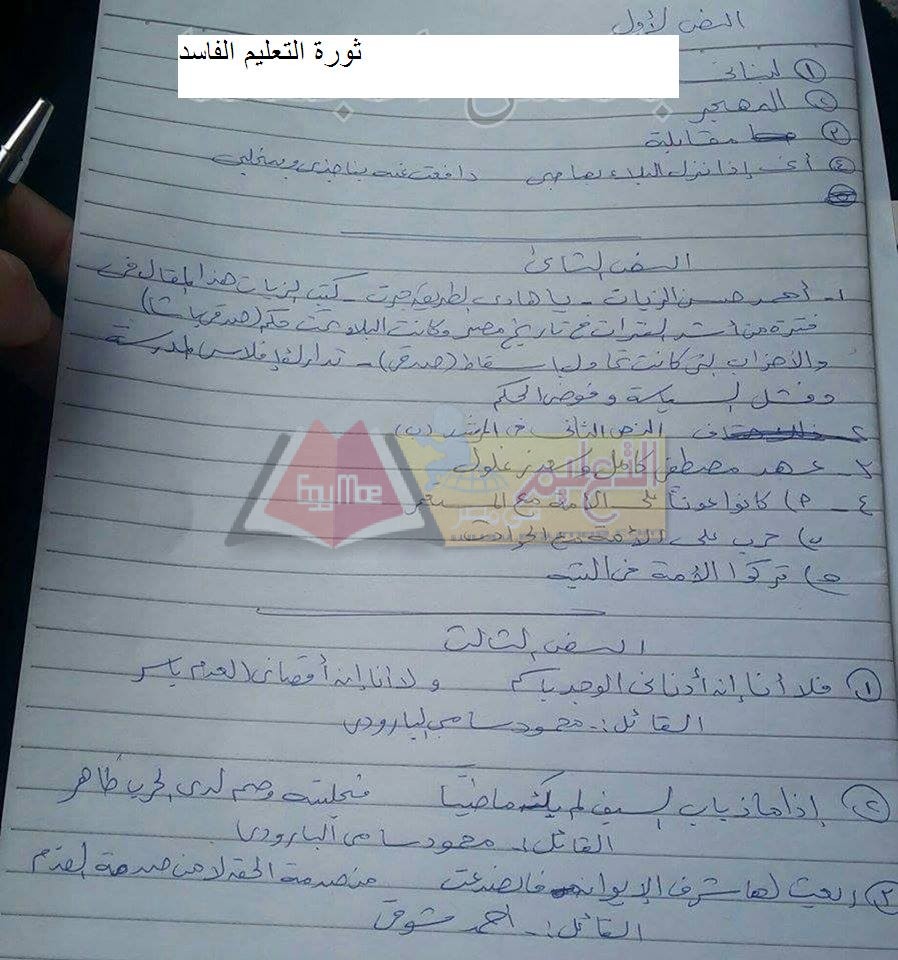 النص الأول
ثورة التعليم الفاسد
① لبنانى
② المهجر
③ مقابلة
④ أى إذا نزل البلاء بصاحبى دافعت عنه بناجذى وبمخلبى
النص الثانى
١- أحمد حسن الزيات - يا هادى الطريق جرت - كتب الزيات هذا المقال فى
فترة من أشد الفترات فى تاريخ مصر وكانت البلاد تحت حكم (صدقى باشا)
والأحزاب التى كانت تحاول إسقاط (صدقى) - تدارك إفلاس المدرسة
وفشل السياسة وفوضى الحكم
٢- النص الثانى فى المرشد (ب)
٣- عهد مصطفى كامل و سعد زغلول
٤- أ) كانوا عوناً على الأمة مع المستعمر
ب) حرب على الأمة مع الحوادث
ج) تركوا الأمة فى التيه
التعليم
فى مصر
EgyMoe
النص الثالث
① فلا أنا إن أدنانى الوجد باسم ولا أنا إن أقصانى العدم باسر
القائل :- محمود سامى البارودى
② إذا ما ذباب السيف لم يك ماضياً فحليته وصم لدى الحرب ظاهر
القائل :- محمود سامى البارودى
③ ريعت لها شرف الإيوان فانصدعت من صدمة الحق لا من صدمة القدم
القائل :- أحمد شوقى